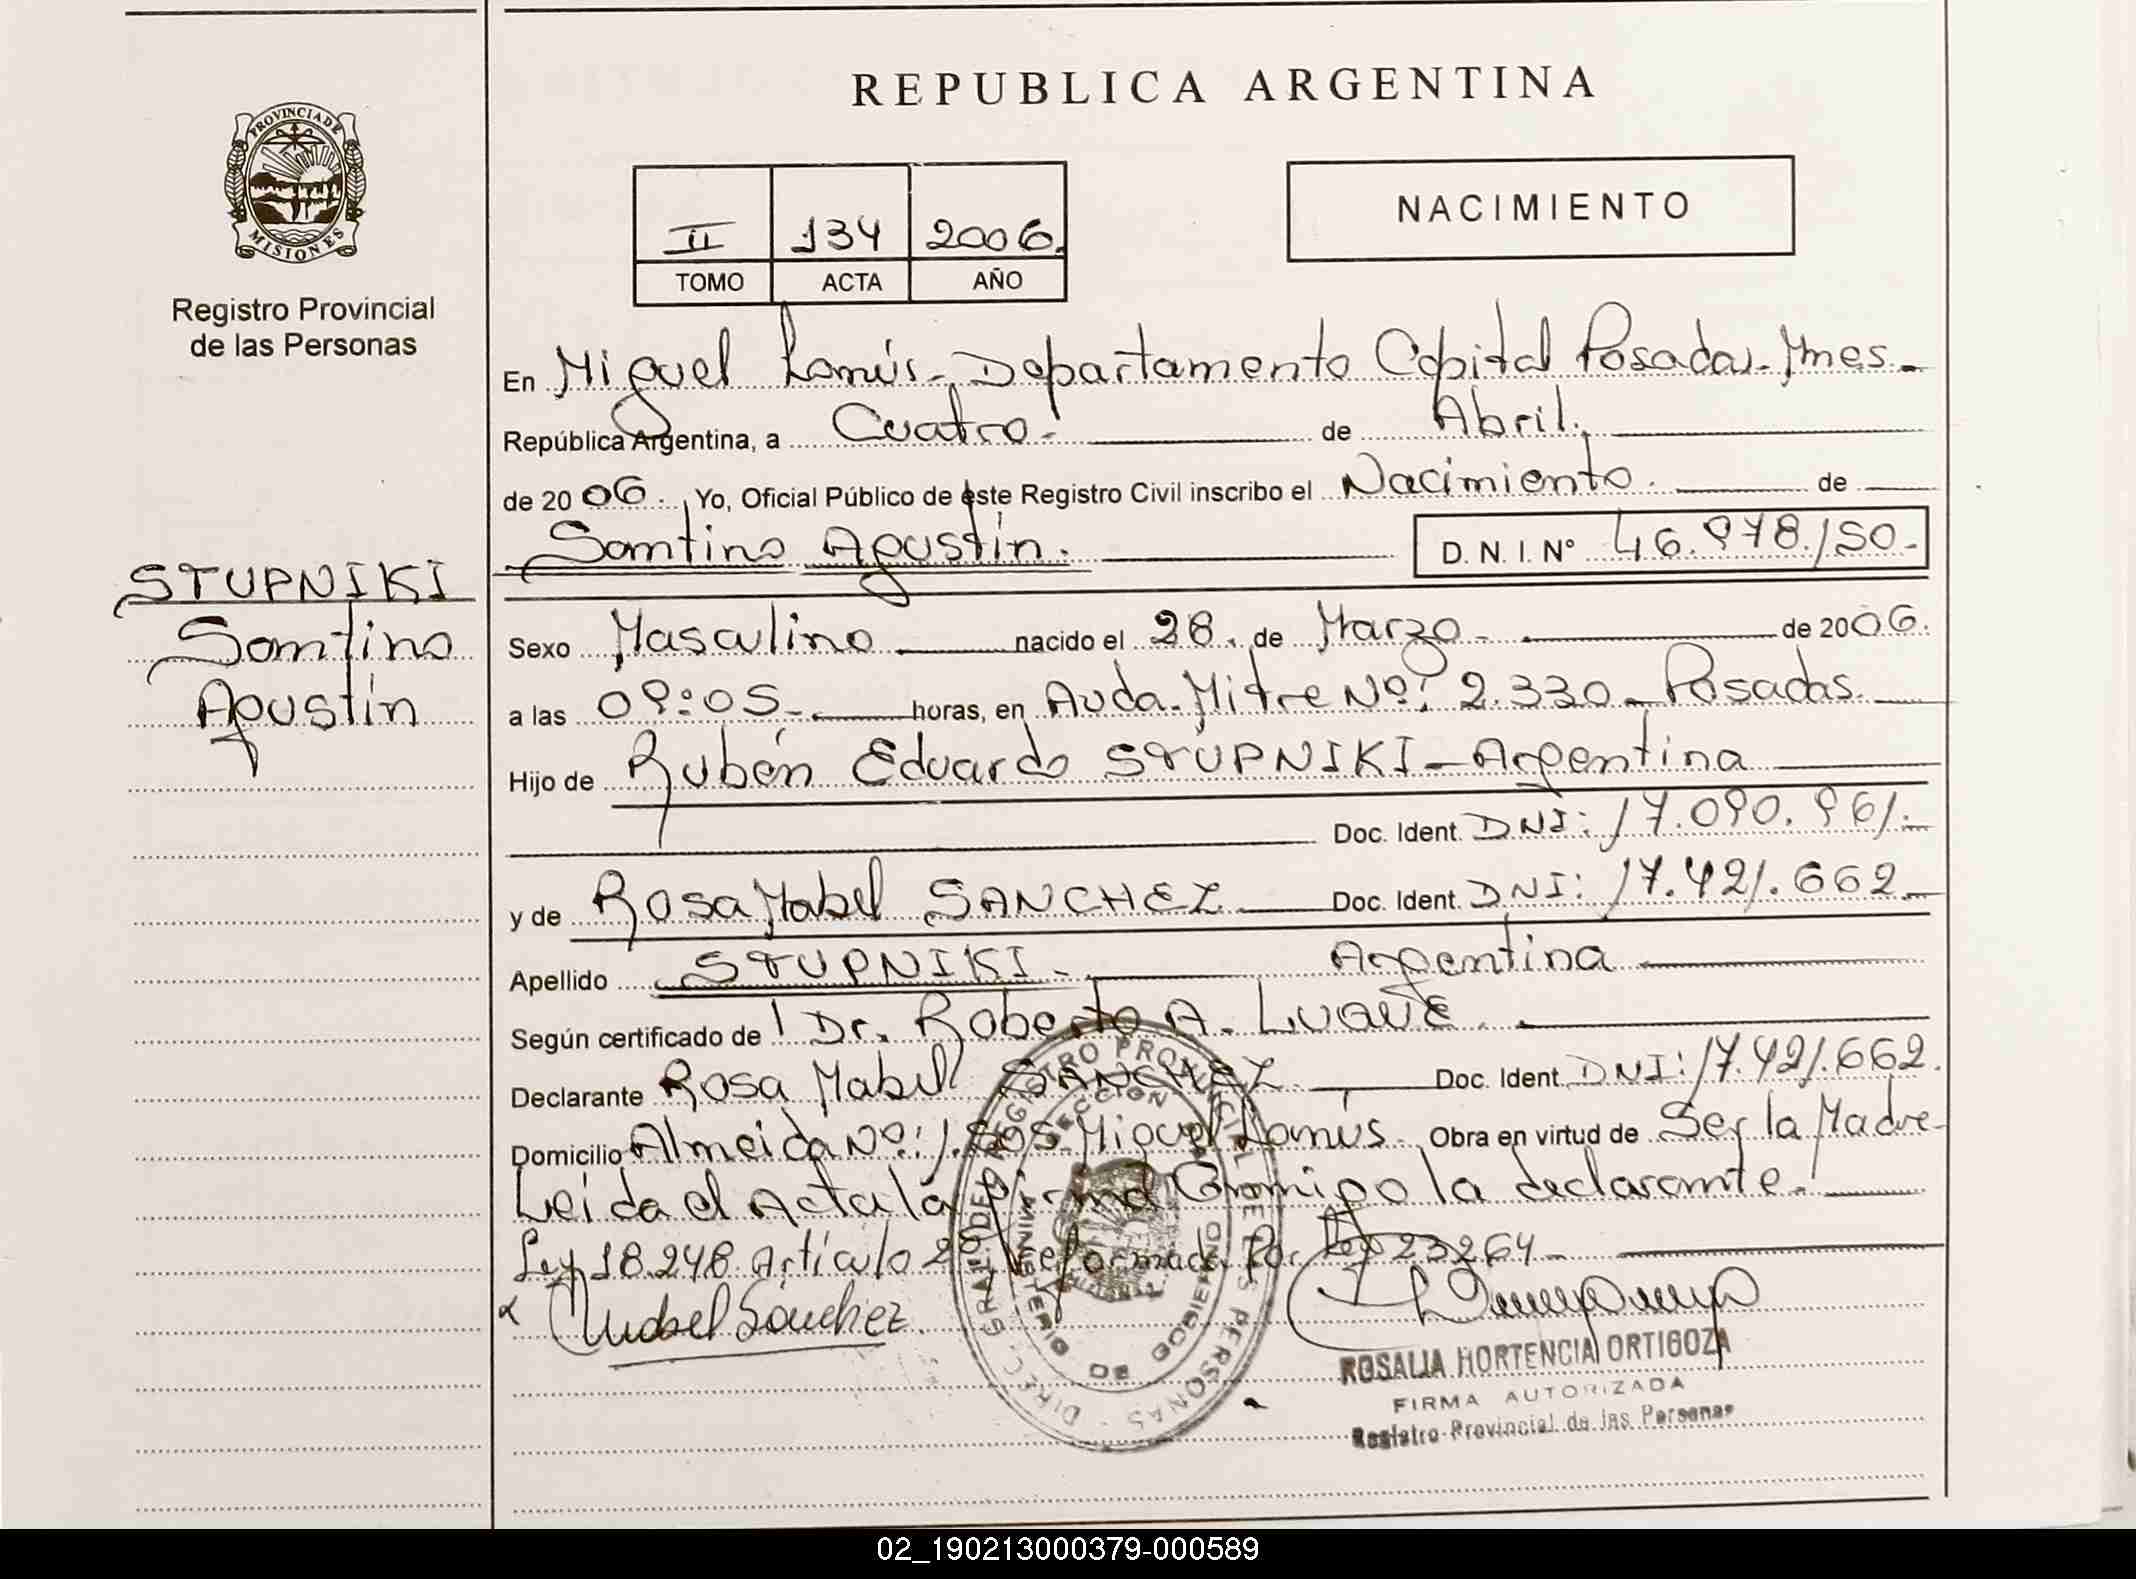 REPUBLICA ARGENTINA
PROVINCIA DE
MISIONES
Registro Provincial
de las Personas
NACIMIENTO
II 134 2006.
TOMO ACTA AÑO
En Miguel Lanús - Departamento Capital Posadas - Mnes -
República Argentina, a Cuatro - de Abril.
de 2006. Yo, Oficial Público de este Registro Civil inscribo el Nacimiento. de
Santino Agustín. D. N. I. Nº 46.978.150 -
STUPNIKI
Santino
Agustín
Sexo Masculino nacido el 28. de Marzo - de 2006.
a las 09:05 - horas, en Avda. Mitre Nº: 2.330 - Posadas.
Hijo de Rubén Eduardo STUPNIKI - Argentina
Doc. Ident. DNI: 17.090.961.-
y de Rosa Mabel SANCHEZ Doc. Ident. DNI: 17.421.662 -
Apellido STUPNIKI - Argentina
Según certificado de Dr. Roberto A.
Declarante Rosa Mabel SANCHEZ. Doc. Ident. DNI: 17.421.662.
Domicilio Almeida Nº: 1.505 Miguel Lanús. Obra en virtud de Ser la Madre -
Leida el Acta la firma Conmigo la declarante.
Ley 18.248 Artículo 2º Reformada Por Ley 23264 -
Mabel Sánchez
DIREC. GRAL. DEL REGISTRO PROVINCIAL DE LAS PERSONAS
MINISTERIO DE GOBIERNO
ROSALIA HORTENCIA ORTIGOZA
FIRMA AUTORIZADA
Registro Provincial de las Personas
02_190213000379-000589